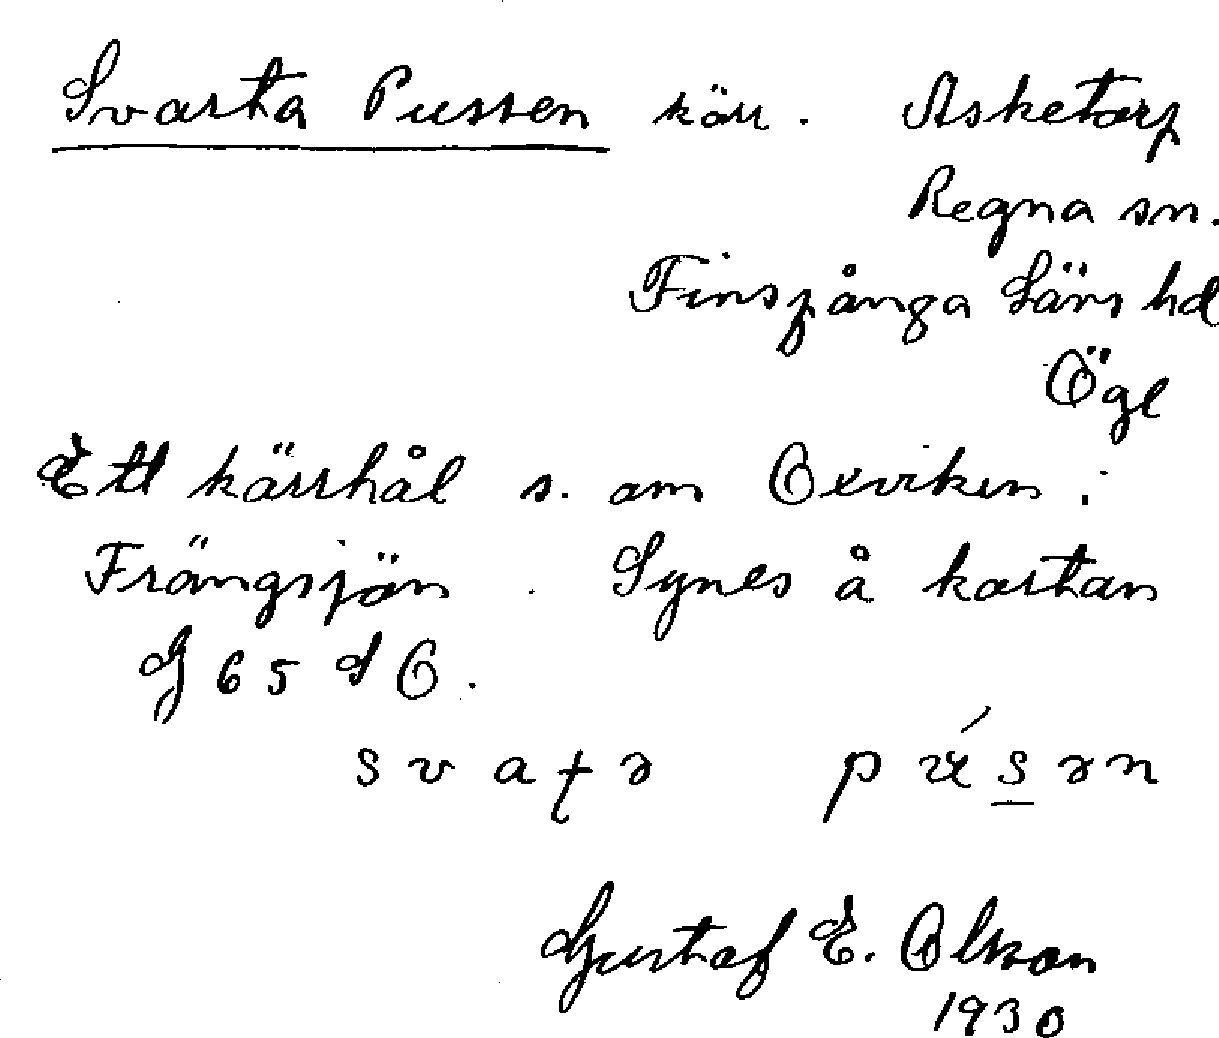 Svarta Pussen kärr. Asketorp
Regna sn.
Finspånga läns hd
Ögl
Ett kärrhål s. om Oxviken i
Frängsjön. Synes å kartan
G 65 d 6.
Gustaf E. Olsson
1930